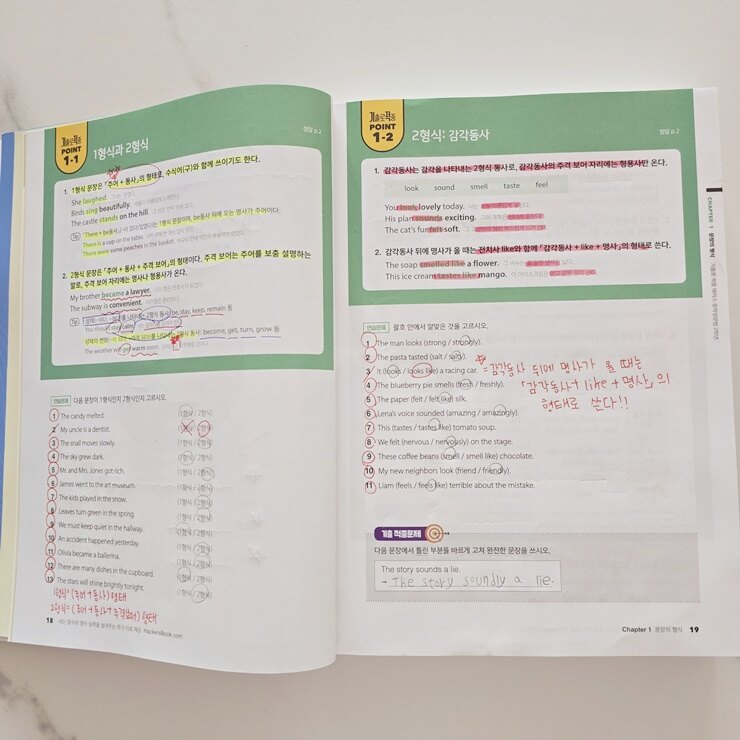 기출로 적중
POINT
1-1
1형식과 2형식
정답 p.2
1. 1형식 문장은 「주어 + 동사」의 형태로, 수식어(구)와 함께 쓰이기도 한다.
She laughed.
Birds sing beautifully.
The castle stands on the hill.
Tip 「There + be동사 ~」는 1형식 문장이며, be동사 뒤에 오는 명사가 주어이다.
There is a cup on the table.
There were some peaches in the basket.
2. 2형식 문장은 「주어 + 동사 + 주격 보어」의 형태이다. 주격 보어는 주어를 보충 설명하는
말로, 주격 보어 자리에는 명사나 형용사가 온다.
My brother became a lawyer.
The subway is convenient.
Tip be, stay, keep, remain 등
You should stay calm.
become, get, turn, grow 등
The weather will get warm soon.
연습문제 다음 문장이 1형식인지 2형식인지 고르시오.
1 The candy melted. (1형식 / 2형식)
2 My uncle is a dentist. (1형식 / 2형식)
3 The snail moves slowly. (1형식 / 2형식)
4 The sky grew dark. (1형식 / 2형식)
5 Mr. and Mrs. Jones got rich. (1형식 / 2형식)
6 James went to the art museum. (1형식 / 2형식)
7 The kids played in the snow. (1형식 / 2형식)
8 Leaves turn green in the spring. (1형식 / 2형식)
9 We must keep quiet in the hallway. (1형식 / 2형식)
10 An accident happened yesterday. (1형식 / 2형식)
11 Olivia became a ballerina. (1형식 / 2형식)
12 There are many dishes in the cupboard. (1형식 / 2형식)
13 The stars will shine brightly tonight. (1형식 / 2형식)
1형식 = (주어 + 동사) 형태
2형식 = (주어 + 동사 + 주격보어) 형태
18 HackersBook.com
기출로 적중
POINT
1-2
2형식: 감각동사
정답 p.2
1. 감각동사는 감각을 나타내는 2형식 동사로, 감각동사의 주격 보어 자리에는 형용사만 온다.
look sound smell taste feel
You look lovely today.
His plan sounds exciting.
The cat's fur felt soft.
2. 감각동사 뒤에 명사가 올 때는 전치사 like와 함께 「감각동사 + like + 명사」의 형태로 쓴다.
The soap smelled like a flower.
This ice cream tastes like mango.
연습문제 괄호 안에서 알맞은 것을 고르시오.
1 The man looks (strong / strongly).
2 The pasta tasted (salt / salty).
3 It (looks / looks like) a racing car.
4 The blueberry pie smells (fresh / freshly).
5 The paper (felt / felt like) silk.
6 Lena's voice sounded (amazing / amazingly).
7 This (tastes / tastes like) tomato soup.
8 We felt (nervous / nervously) on the stage.
9 These coffee beans (smell / smell like) chocolate.
10 My new neighbors look (friend / friendly).
11 Liam (feels / feels like) terrible about the mistake.
☆ = 감각동사 뒤에 명사가 올 때는
「감각동사 + like + 명사」의
형태로 쓴다!!
기출 적중문제
다음 문장에서 틀린 부분을 바르게 고쳐 완전한 문장을 쓰시오.
The story sounds a lie.
→ The story soundly a lie.
CHAPTER 1 문장의 형식
Chapter 1 문장의 형식 19